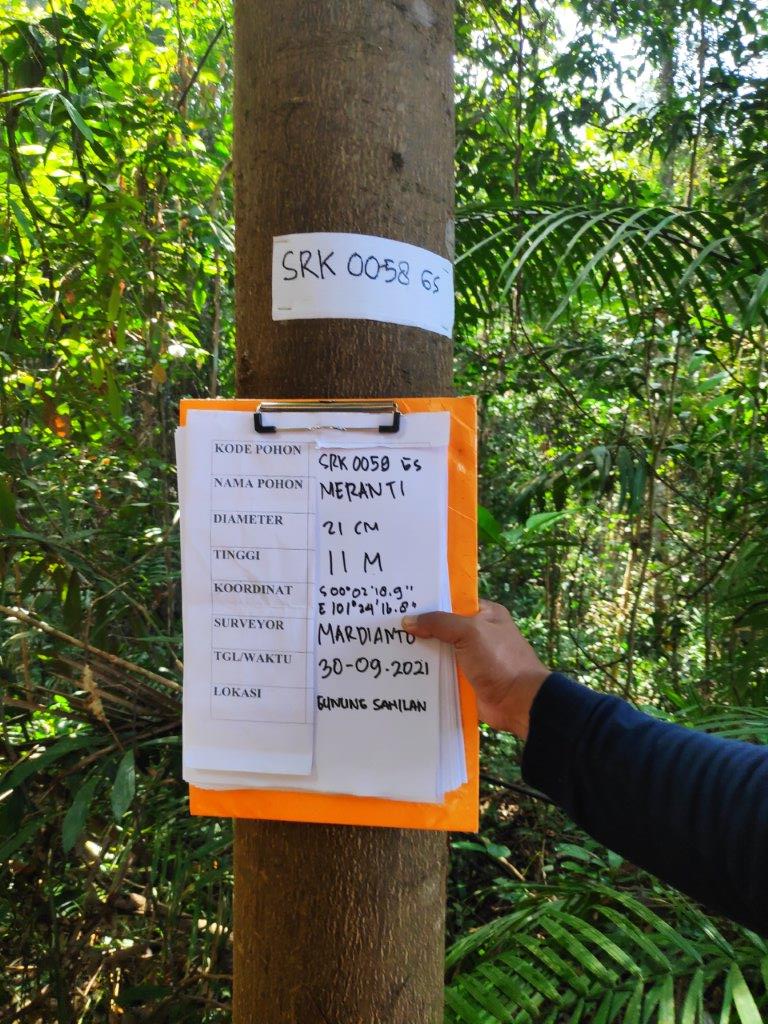 SRK 0058 GS
KODE POHON SRK 0058 GS
NAMA POHON MERANTI
DIAMETER 21 CM
TINGGI 11 M
KOORDINAT S 00°02'18.9"
E 101°24'16.8"
SURVEYOR MARDIANTO
TGL/WAKTU 30-09-2021
LOKASI GUNUNG SAHILAN